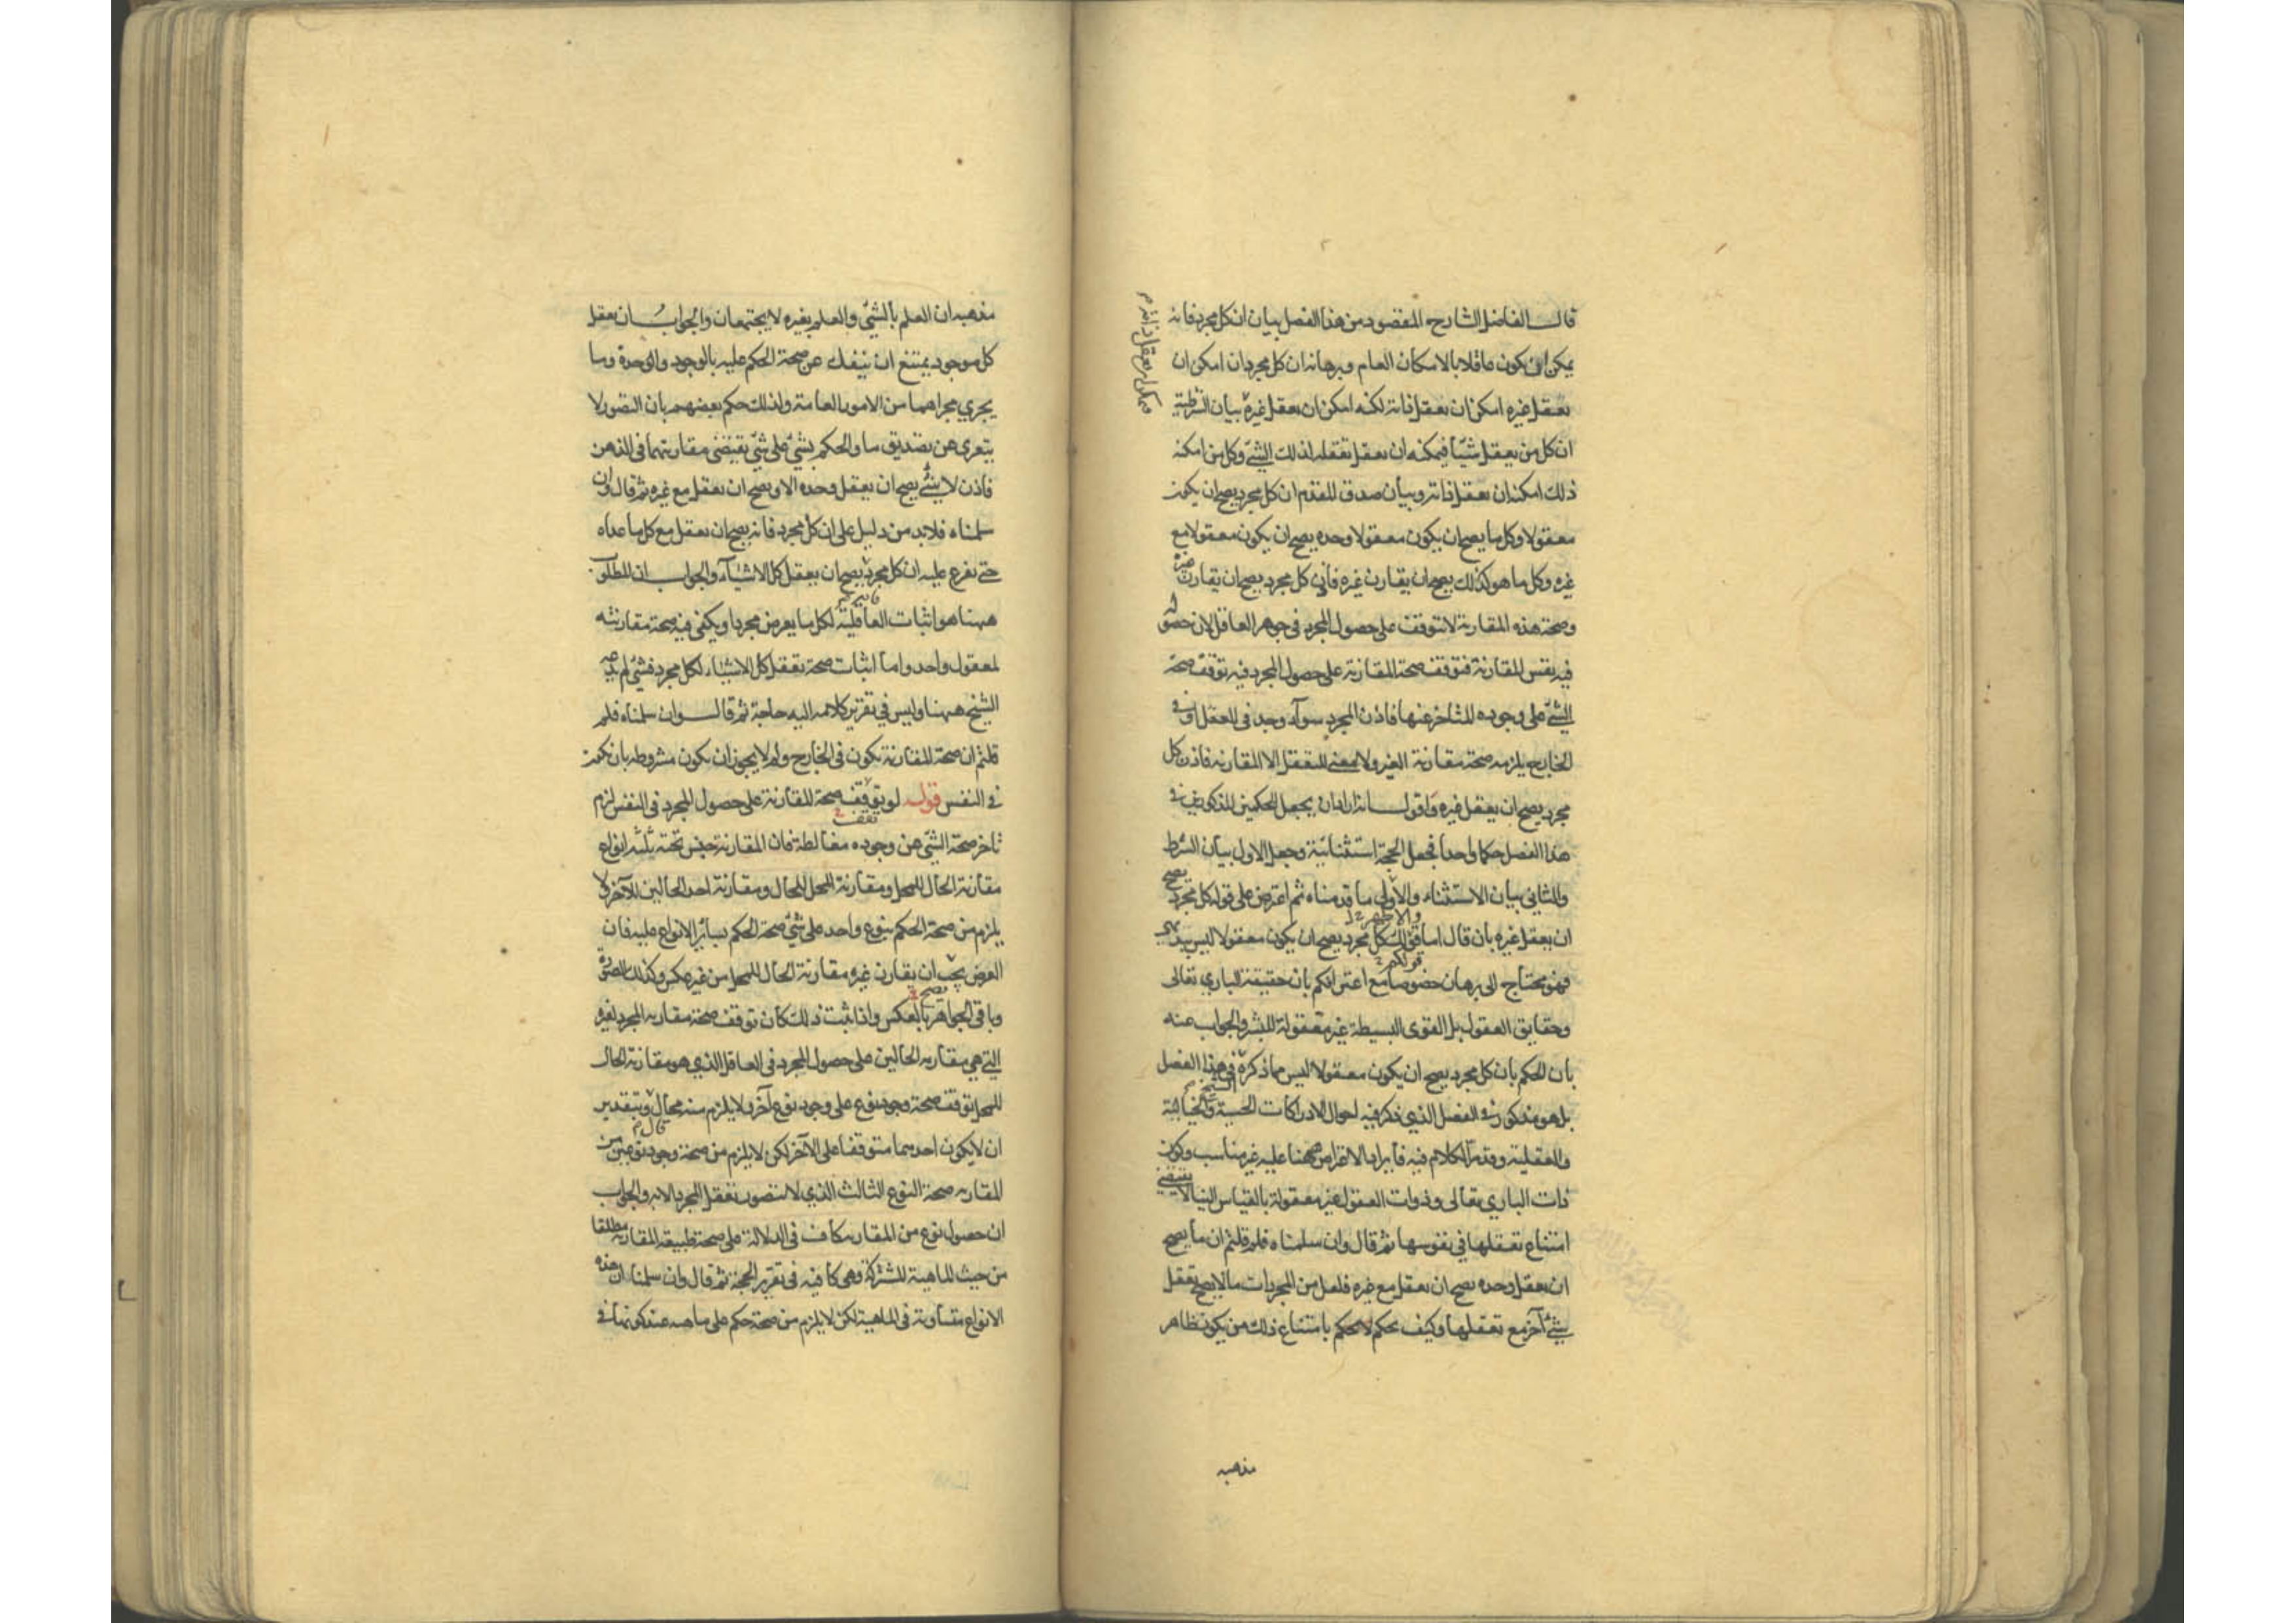 قال الفاضل الشارح المقصود من هذا الفصل بيان ان كل مجرد فانه
يمكن ان يكون عاقلا بالامكان العام وبرهانه ان كل مجرد ان امكن ان
يعقل غيره امكن ان يعقل ذاته لكنه امكن ان يعقل غيره بيان الشرطية
ان كل من يعقل شيئا فيمكنه ان يعقل تعقله لذلك الشئ وكل من امكنه
ذلك امكنه ان يعقل ذاته وبيان صدق المقدم ان كل مجرد يصح ان يكون
معقولا وكل ما يصح ان يكون معقولا وحده يصح ان يكون معقولا مع
غيره وكل ما هو كذلك يصح ان يقارن غيره فاذن كل مجرد يصح ان يقارن غيره
وصحة هذه المقارنة لا تتوقف على حصول المجرد فى جوهر العاقل لان حصوله
فيه نفس المقارنة فتوقف صحة المقارنة على حصول المجرد فيه توقف صحة
الشئ على وجوده المتاخر عنها فاذن المجرد سوآء وجد فى العقل او فى
الخارج يلزمه صحة مقارنة الغير ولا معنى للتعقل الا المقارنة فاذن كل
مجرد يصح ان يعقل غيره واقول انه اراد ان يجعل الحكمين المذكورين فى
هذا الفصل حكما واحدا فجعل الحجة استثنائية وجعل الاول بيان الشرط
والثانى بيان الاستثناء والاولى ما قدمناه ثم اعترض على قوله كل مجرد يصح
ان يعقل غيره بان قال اما قولك كل مجرد يصح ان يكون معقولا ليس ببديهى
والاظهر
قولكم
فهو محتاج الى برهان خصوصا مع اعترافكم بان حقيقة البارى تعالى
وحقايق العقول بل القوى البسيطة غير معقولة للبشر والجواب عنه
بان الحكم بان كل مجرد يصح ان يكون معقولا ليس مما ذكره فى هذا الفصل
الشيخ
بل هو مذكور فى الفصل الذى ذكر فيه احوال الادراكات الحسية والخيالية
والعقلية وقد مر الكلام فيه فايراد الاعتراض ههنا عليه غير مناسب وكون
ذات البارى تعالى وذوات العقول غير معقولة بالقياس الينا لا يقتضى
امتناع تعقلها فى نفوسها ثم قال وان سلمناه فلم قلتم ان ما يصح
ان يعقل وحده يصح ان يعقل مع غيره فلعل من المجردات ما لا يصح تعقل
شئ آخر مع تعقلها وكيف يحكم لا يحكم بامتناع ذلك من يكون ظاهر
مذهبه
مذهبه ان العلم بالشئ والعلم بغيره لا يجتمعان والجواب ان تعقل
كل موجود يمتنع ان ينفك عن صحة الحكم عليه بالوجود والوحدة وما
يجرى مجراهما من الامور العامة ولذلك حكم بعضهم بان التصور لا
يتعرى عن تصديق ما والحكم بشئ على شئ يقتضى مقارنتهما فى الذهن
فاذن لا شئ يصح ان يعقل وحده الا ويصح ان يعقل مع غيره ثم قال وان
سلمناه فلا بد من دليل على ان كل مجرد فانه يصح ان يعقل مع كل ما عداه
حتى يفرع عليه ان كل مجرد يصح ان يعقل كل الاشيآء والجواب ان المطلوب
ههنا هو اثبات العاقلية لكل ما يفرض مجردا ويكفى فيه صحة مقارنته
لمعقول واحد واما اثبات صحة تعقل كل الاشياء لكل مجرد فشئ لم يدعه
الشيخ ههنا وليس فى تقرير كلامه اليه حاجة ثم قال وان سلمناه فلم
قلتم ان صحة المقارنة تكون فى الخارج ولم لا يجوز ان تكون مشروطه بان تكون
فى النفس قوله لو توقف صحة المقارنة على حصول المجرد فى النفس لزم
توقف
تاخر صحة الشئ عن وجوده مغالطة فان المقارنة جنس تحته ثلثه انواع
مقارنة الحال للمحل ومقارنة المحل للحال ومقارنة احد الحالين للآخر ولا
يلزم من صحة الحكم بنوع واحد على شئ صحة الحكم بسائر الانواع عليه فان
العرض يجب ان يقارن غيره مقارنة الحال للمحل من غير عكس وكذلك الصورة
يصح
وباقى الجواهر بالعكس واذا ثبت ذلك كان توقف صحة مقارنه المجرد لغيره
التى هى مقارنه الحالين على حصول المجرد فى العاقل الذى هو مقارنة الحال
للمحل توقف صحة وجود نوع على وجود نوع آخر ولا يلزم منه محال وبتقدير
قال
ان لا يكون احدهما متوقفا على الآخر لكن لا يلزم من صحة وجود نوعين من
المقارنه صحة النوع الثالث الذى لا يتصور تعقل المجرد الا به والجواب
ان حصول نوع من المقارنه كاف فى الدلالة على صحة طبيعة المقارنه مطلقا
من حيث الماهية المشتركة وهى كافيه فى تقرير الحجة ثم قال وان سلمنا ان هذه
الانواع متساوية فى الماهية لكن لا يلزم من صحة حكم على ماهيه عند كونها فى